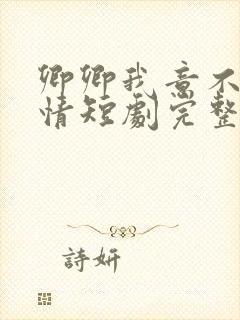 卿卿我意不
情短劇完整
詩妍